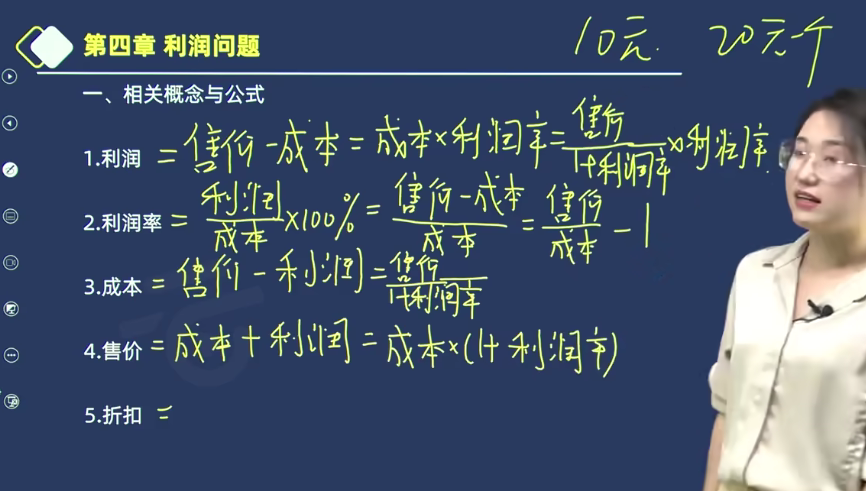 第四章 利润问题
10元 20元一个
一、相关概念与公式
1.利润 = 售价-成本 = 成本×利润率 = 售价/(1+利润率)×利润率
2.利润率 = 利润/成本×100% = 售价-成本/成本 = 售价/成本-1
3.成本 = 售价-利润 = 售价/1+利润率
4.售价 = 成本+利润 = 成本×(1+利润率)
5.折扣 =